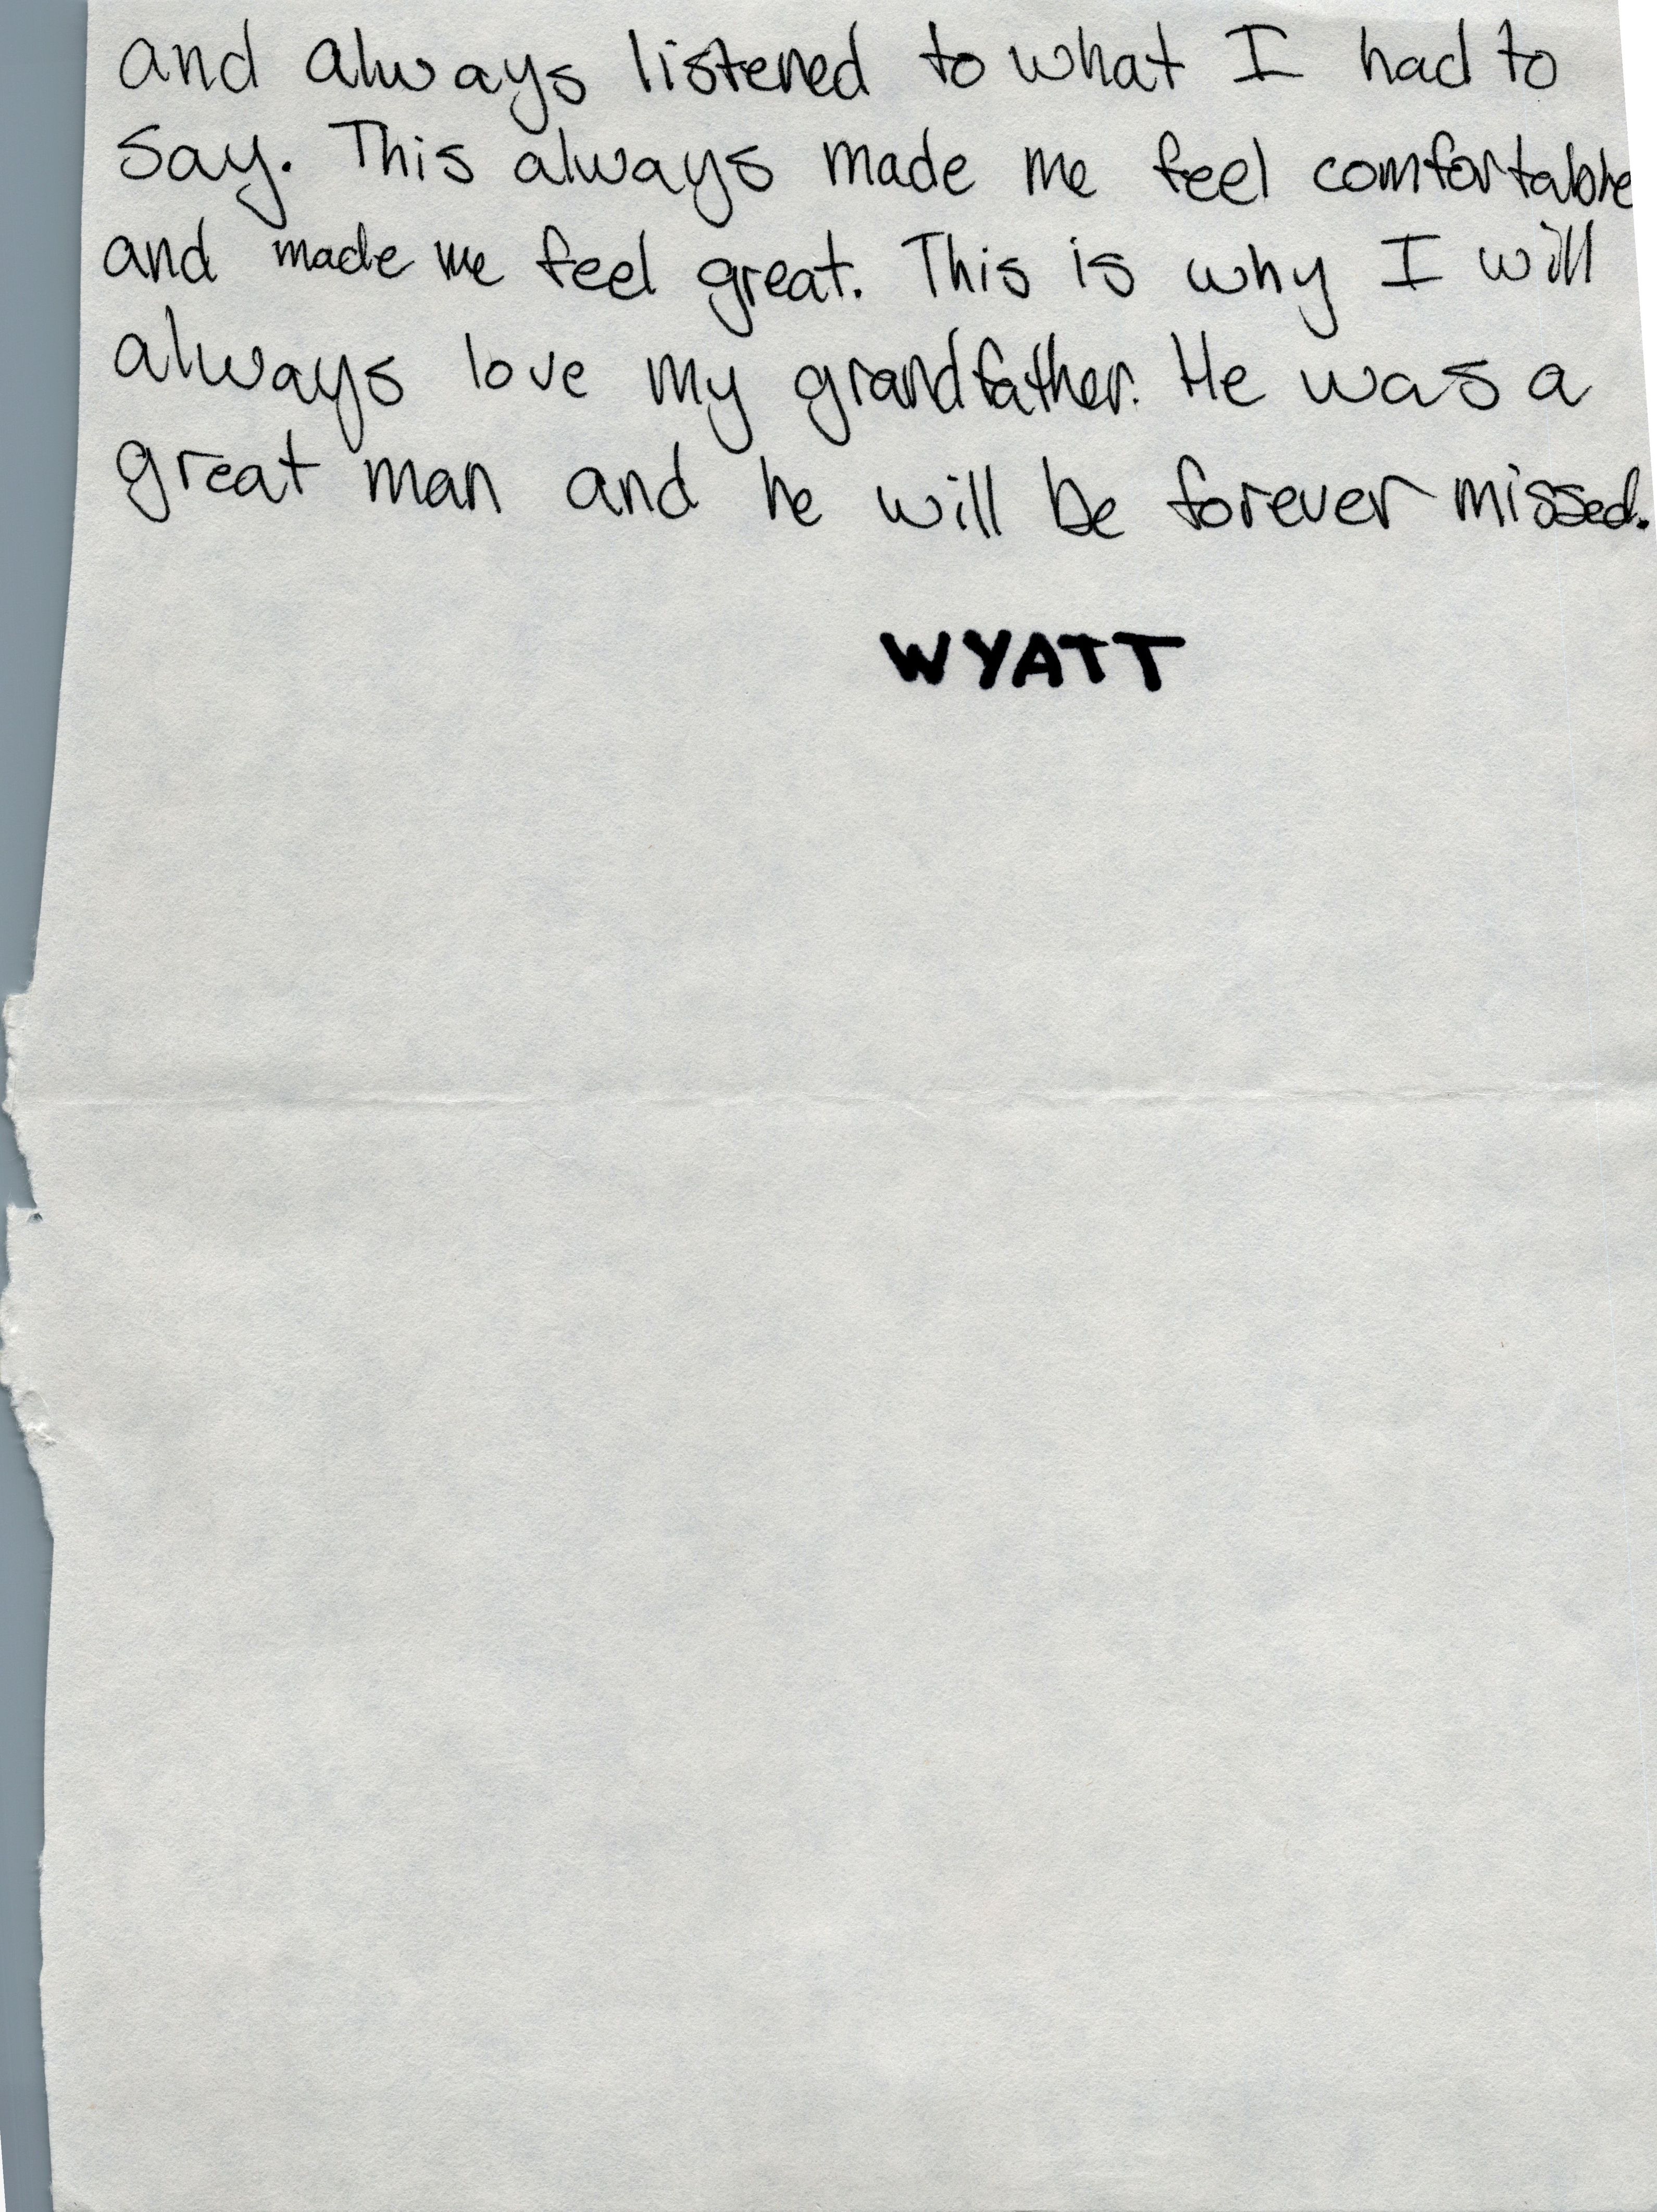 and always listened to what I had to
say. This always made me feel comfortable
and made me feel great. This is why I will
always love my grandfather. He was a
great man and he will be forever missed.
WYATT